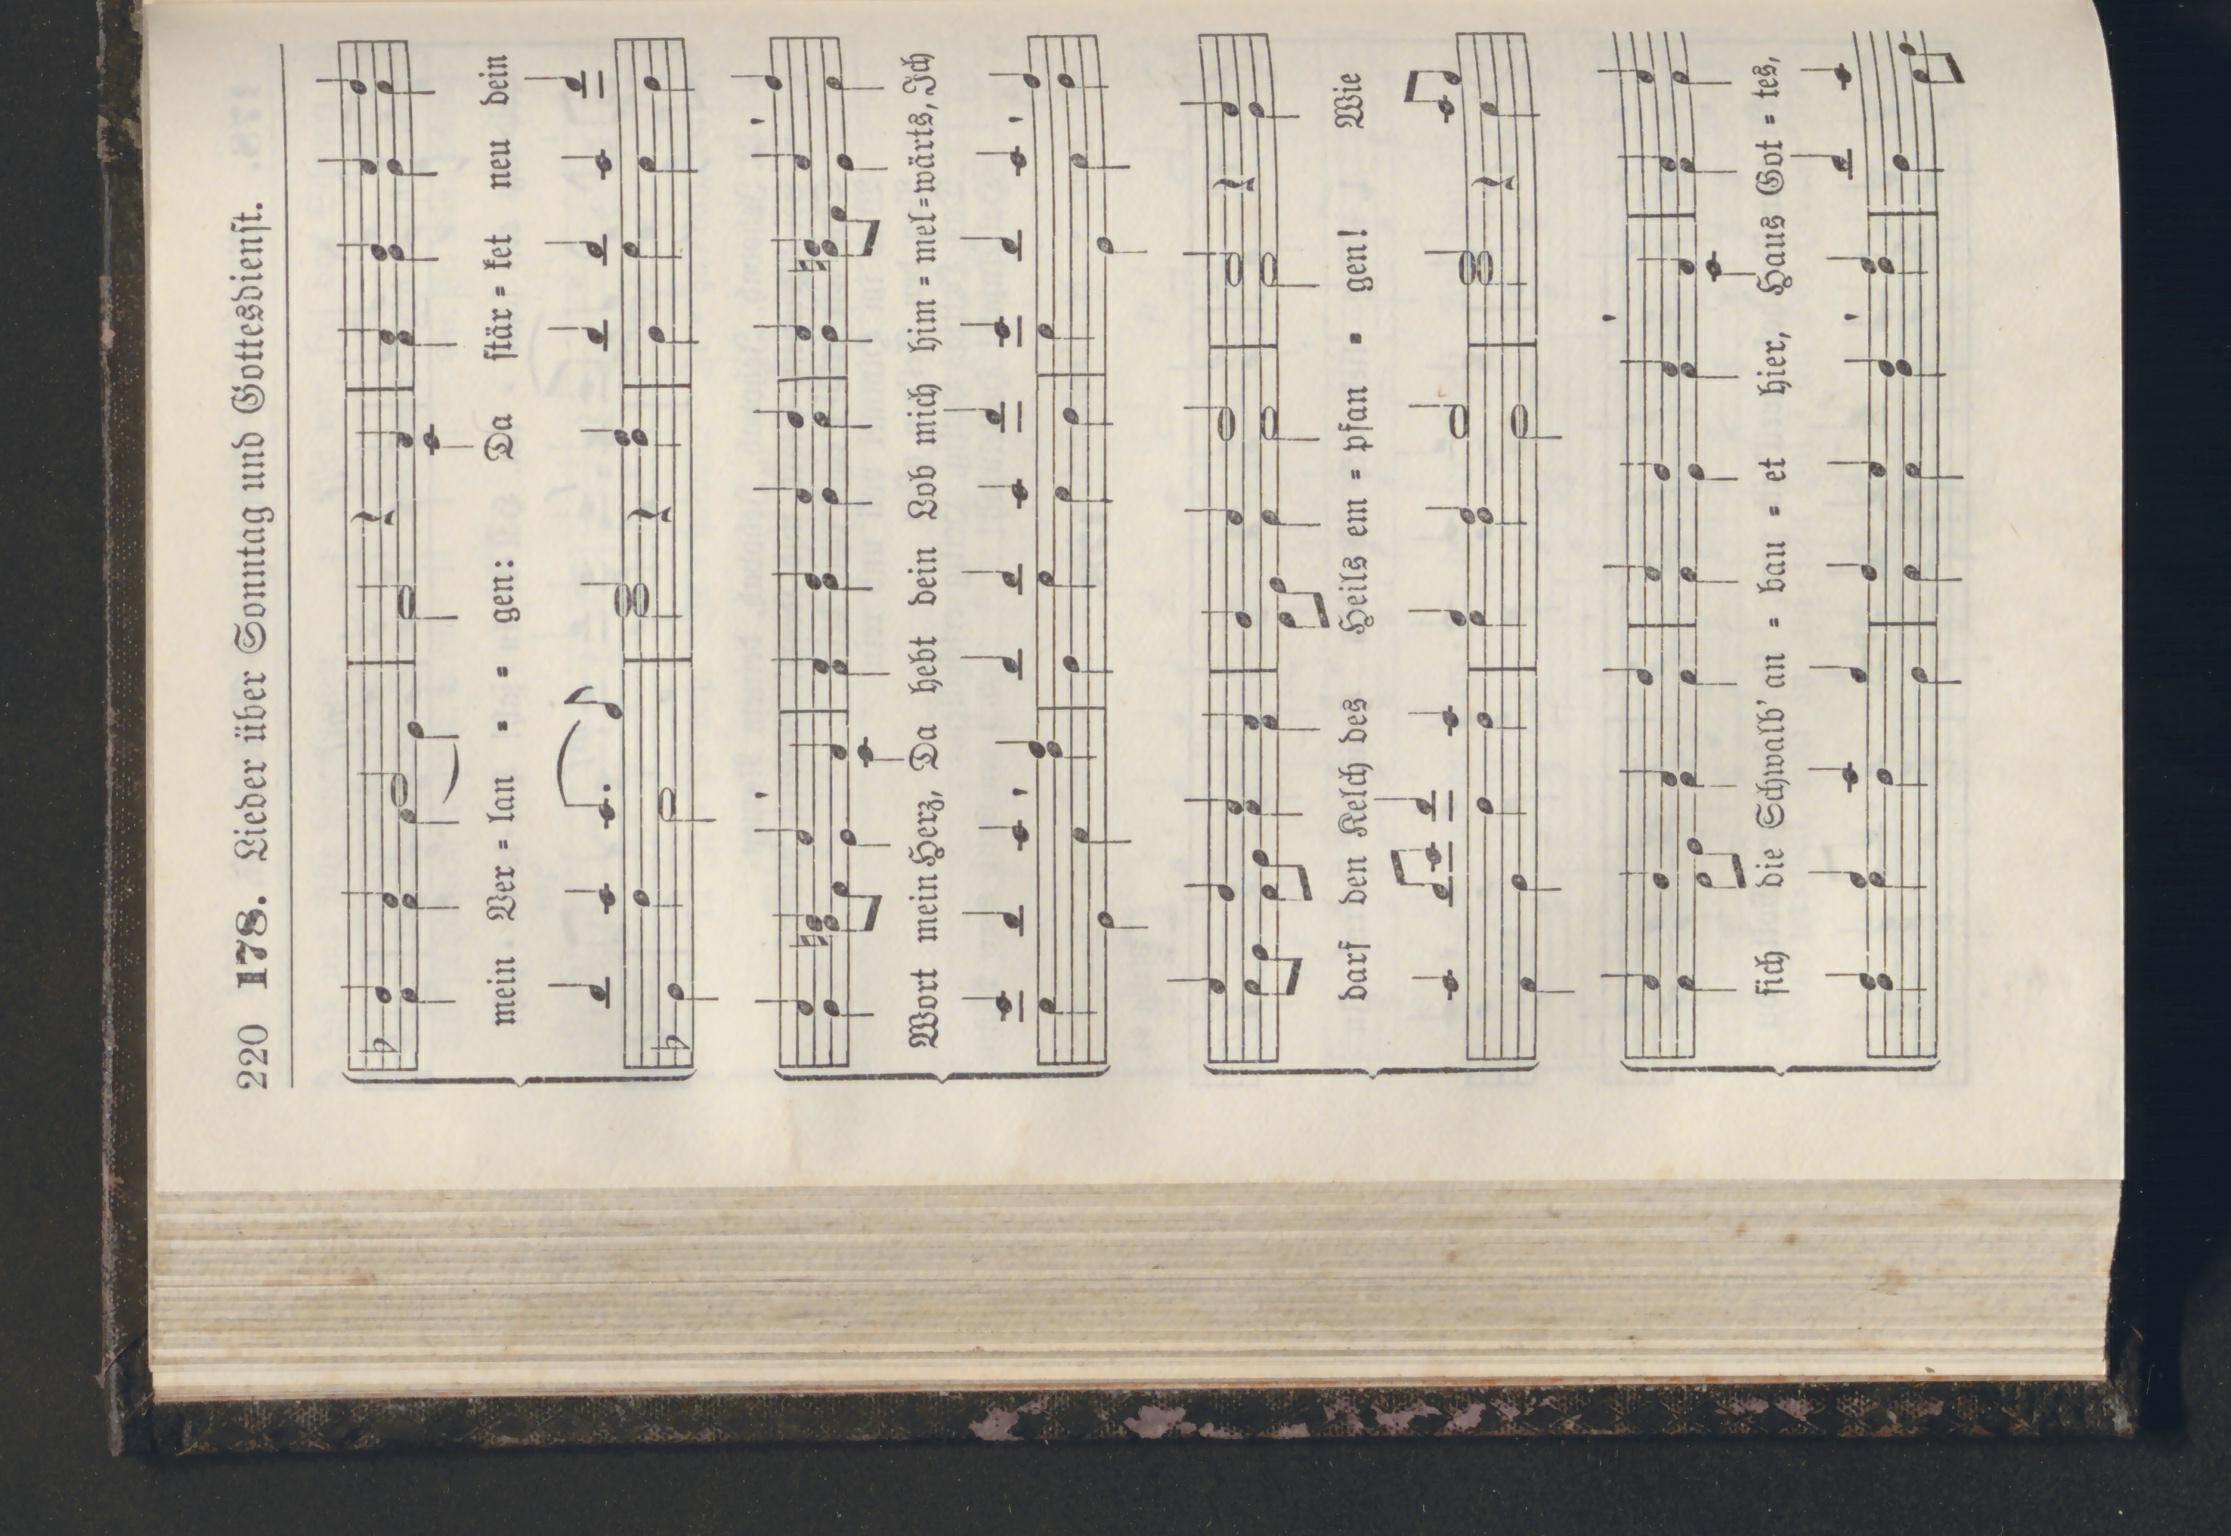 220 178. Lieder über Sonntag und Gottesdienst.
mein Ver = lan = = gen: Da stär = ket neu dein
Wort mein Herz, Da hebt dein Lob mich him = mel = wärts, Ich
darf den Kelch des Heils em = pfan = gen! Wie
sich die Schwalb' an = bau = et hier, Haus Got = tes,